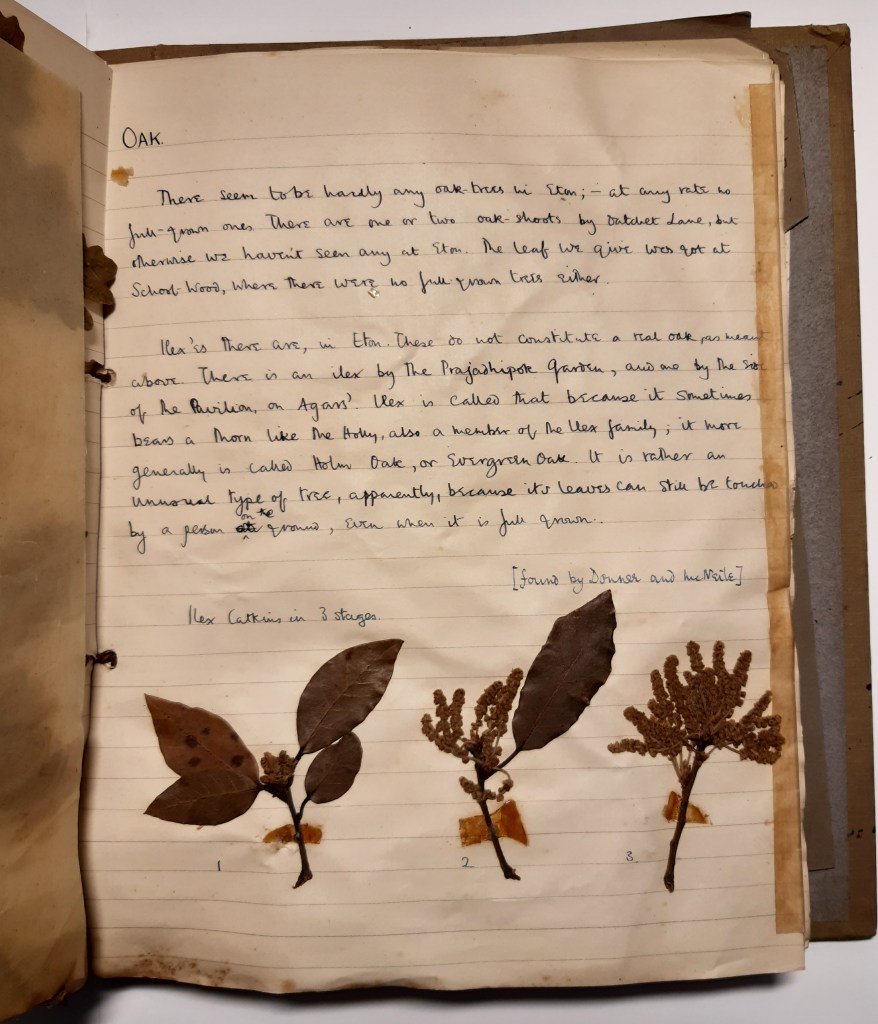 OAK.
There seem to be hardly any oak-trees in Eton; – at any rate no
full-grown ones. There are one or two oak-shoots by Datchet Lane, but
otherwise we haven't seen any at Eton. The leaf we give was got at
School Wood, where there were no full-grown trees either.
Ilex'es there are, in Eton. These do not constitute a real oak, as meant
above. There is an ilex by the Prajadhipok Garden, and one by the side
of the Pavilion, on Agars'. Ilex is called that because it sometimes
bears a thorn like the Holly, also a member of the Ilex family; it more
generally is called Holm Oak, or Evergreen Oak. It is rather an
unusual type of tree, apparently, because its leaves can still be touched
on the
by a person ground, even when it is full grown.
[found by Donner and McNeile]
Ilex Catkins in 3 stages.
1 2 3.